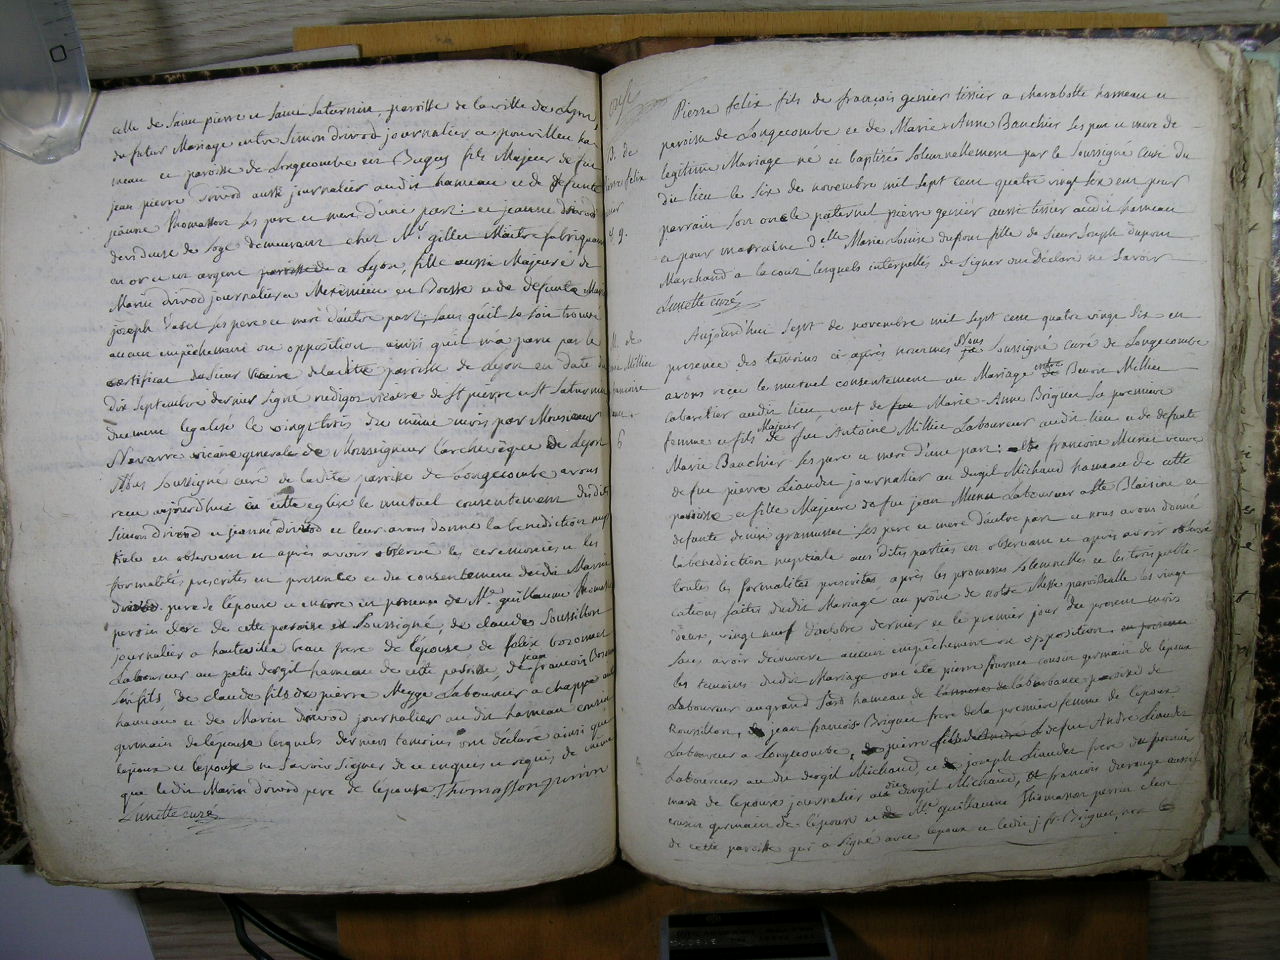 celle de Saint pierre et Saint Saturnin, paroisse de la ville de Lyon,
du futur Mariage entre Simon drivod journalier a pouvillieu ha-
meau et paroisse de Longecombe en Bugey fils Majeur de feu
jean pierre Drivod aussi journalier audit hameau et de defunte
jeanne Thomasson ses pere et mere d'une part: et jeanne drivod
devideuse de soye demeurant chez Mr. gillet Maitre fabriquant
en or et en argent a Lyon, fille aussi Majeure de
Marin drivod journalier a Meximieu en Bresse et de defunte Marie
joseph ses pere et mere d'autre part; sans qu'il se soit trouvé
aucun empêchement ou opposition ainsi qu'il m'a paru par le
certificat du Sieur vicaire de ladite paroisse de Lyon en date du
dix Septembre dernier signé vicaire de St pierre et St Saturnin
duement legalisé le vingt trois du même mois par Monsieur
Navarre vicaire general de Monseigneur l'archevêque de Lyon
Nous Soussigné curé de ladite paroisse de Longecombe avons
recu aujourd'hui en cette eglise le mutuel consentement desdits
Simon drivod et jeanne drivod et leur avons donné la benediction nup-
tiale en observant et après avoir observé les ceremonies et les
formalités prescrites en presence et du consentement dudit Marin
drivod pere de l'epouse et encore en presence de Mr. guillaume Thomasson
perrin clerc de cette paroisse Soussigné, de claude Roussillon
journalier a hauteville beau frere de l'epouse de felix
Laboureur au petit dergil hameau de cette paroisse, de jean francois
son fils, de claude fils de pierre Megge Laboureur a chappe
hameau et de Marin drivod journalier audit hameau cousin
germain de l'epouse lesquels derniers temoins ont declaré ainsi que
l'epoux et l'epouse ne savoir signer de ce enquis et requis de même
que ledit Marin drivod pere de l'epouse. Thomasson perrin
Lunette curé
B. de
pierre felix
M. de
Millier
francoise
6
Pierre felix fils de francois genier tissier a charabotte hameau et
paroisse de Longecombe et de Marie-Anne Bauchier ses pere et mere de
legitime Mariage né et baptisé solemnellement par le soussigné curé du
du lieu le six de novembre mil sept cent quatre vingt six eut pour
parrain son oncle paternel pierre genier aussi tissier audit hameau
et pour marraine Delle Marie Louise dupont fille de Sieur joseph dupont
Marchand a la cour lesquels interpellés de signer ont déclaré ne savoir
Lunette curé
Aujourd'hui sept de novembre mil sept cent quatre vingt six en
presence des temoins ci après nommés Nous soussigné curé de Longecombe
avons recu le mutuel consentement au Mariage entre Benoit Millier
cabaretier audit lieu, veuf de Marie-Anne Briguet sa premiere
femme et fils Majeur de feu Antoine Millier Laboureur audit lieu et de defunte
Marie Bauchier ses pere et mere d'une part: et francoise Munet veuve
de feu pierre Liaudet journalier au dergil Michaud hameau de cette
paroisse et fille Majeure de feu jean Munet Laboureur a Ste Blaisine et
defunte denise grammet ses pere et mere d'autre part et nous avons donné
la benediction nuptiale aux dites parties en observant et après avoir observé
toutes les formalités prescrites après les promesses solemnelles et les trois publi-
cations faites dudit Mariage au prône de notre Messe paroissiale les vingt
deux, vingt neuf d'octobre dernier et le premier jour du present mois
sans avoir découvert aucun empêchement ou opposition.
les temoins dudit Mariage ont été pierre fournier cousin germain de l'epoux
Laboureur au grand hameau de paroisse de
Roussillon, jean francois Briguet frere de la premiere femme de l'epoux
Laboureur a Longecombe, pierre de feu André Liaudet
Laboureurs audit dergil Michaud, joseph Liaudet frere du premier
mari de l'epouse journalier audit dergil Michaud, et francois aussi
cousin germain de l'epouse et Mr. guillaume Thomasson perrin clerc
de cette paroisse qui a signé avec l'epoux et ledit j. fr. Briguet, non